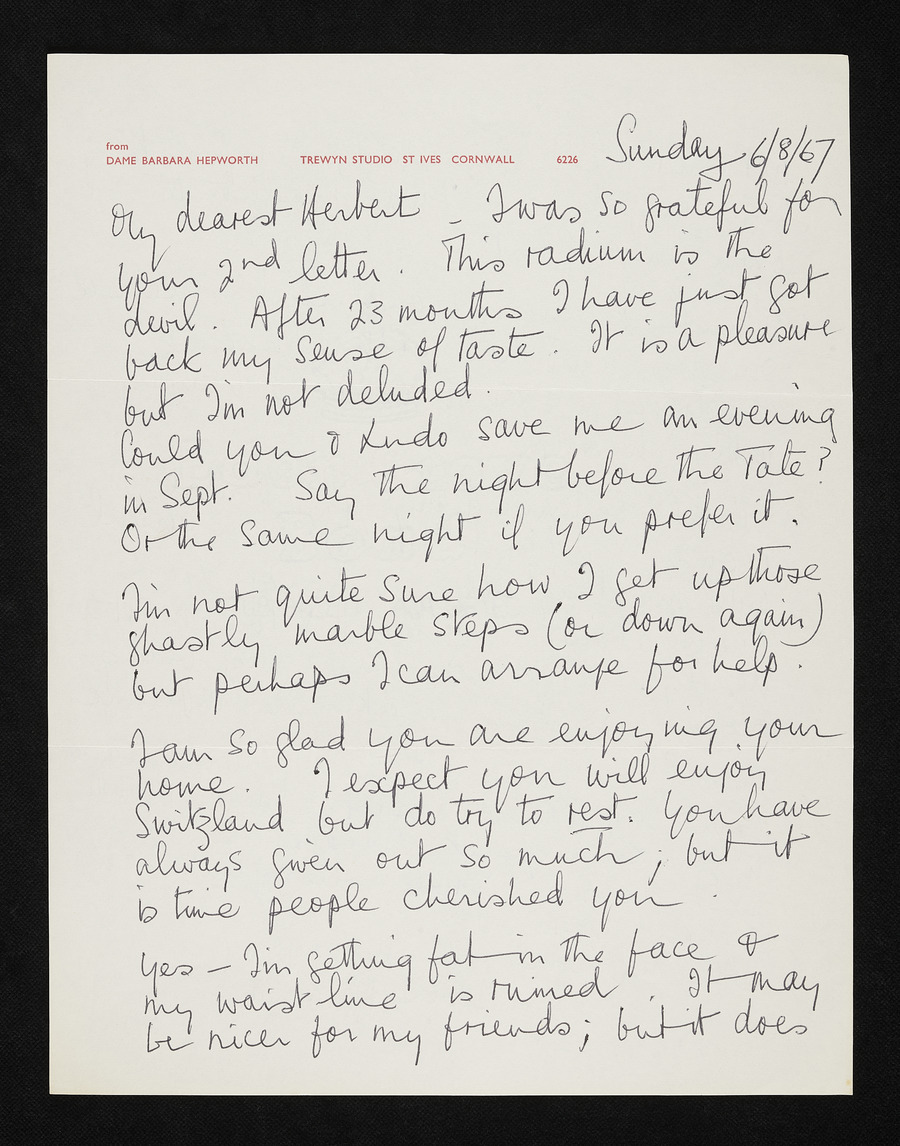 from
DAME BARBARA HEPWORTH TREWYN STUDIO ST IVES CORNWALL 6226
Sunday 6/8/67
My dearest Herbert _ I was so grateful for
your 2nd letter. This radium is the
devil. After 23 months I have just got
back my sense of taste. It is a pleasure
but I'm not deluded.
Could you & Ludo save me an evening
in Sept. Say the night before the Tate?
Or the same night if you prefer it.
I'm not quite sure how I get up those
ghastly marble steps (or down again)
but perhaps I can arrange for help.
I am so glad you are enjoying your
home. I expect you will enjoy
Switzland but do try to rest. You have
always given out so much; but it
is time people cherished you.
Yes – I'm getting fat in the face &
my waist line is ruined. It may
be nicer for my friends; but it does